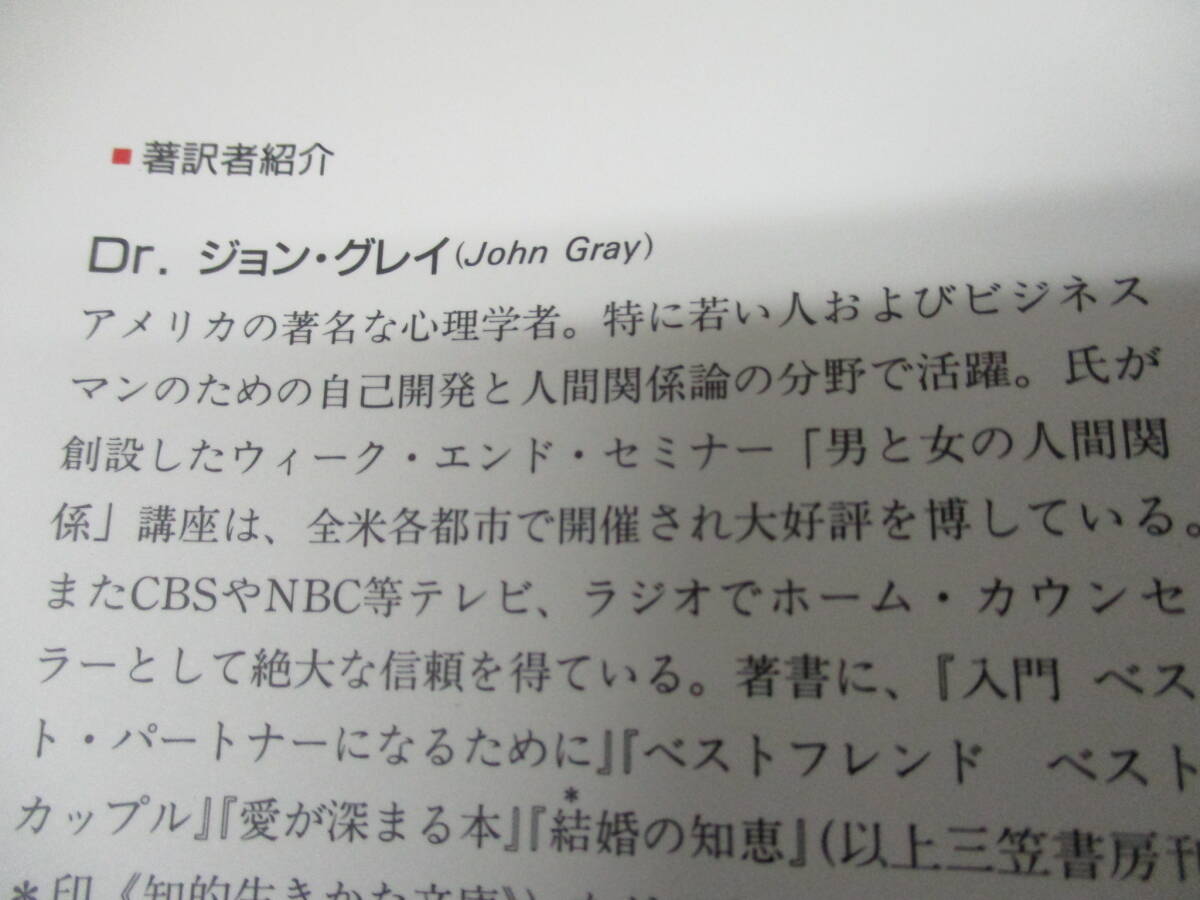 ■ 著訳者紹介
Dr. ジョン・グレイ(John Gray)
アメリカの著名な心理学者。特に若い人およびビジネス
マンのための自己開発と人間関係論の分野で活躍。氏が
創設したウィーク・エンド・セミナー「男と女の人間関
係」講座は、全米各都市で開催され大好評を博している。
またCBSやNBC等テレビ、ラジオでホーム・カウンセ
ラーとして絶大な信頼を得ている。著書に、『入門 ベス
ト・パートナーになるために』『ベストフレンド ベスト
カップル』『愛が深まる本』『*結婚の知恵』(以上三笠書房刊
*印《知的生きかた文庫》)